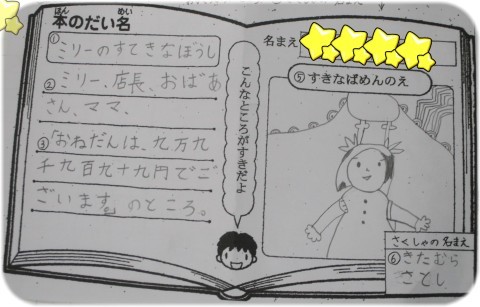 本のだい名
ほん
めい
① ミリーのすてきなぼうし
② ミリー、店長、おばあ
さん、ママ、
③ 「おねだんは、九万九
千九百九十九円でご
ざいます。」のところ。
こんなところがすきだよ
名まえ
⑤ すきなばめんのえ
さくしゃの名まえ
⑥ きたむら
さとし